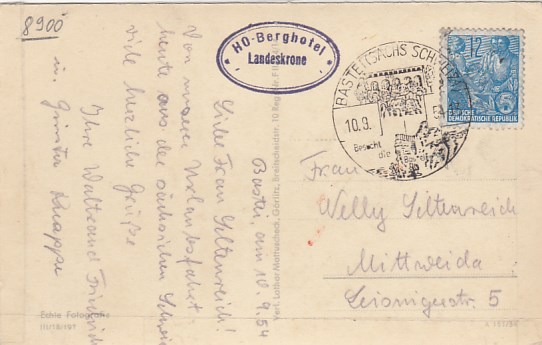 8900
HO-Berghotel
Landeskrone
BASTEI (SÄCHS SCHWEIZ)
10.9.
Besucht
die
12
DEUTSCHE
DEMOKRATISCHE REPUBLIK
Bastei, am 10.9.54
Liebe Frau Siltenreich!
Von unserer Urlaubsfahrt
heute aus der sächsischen Schweiz
viele herzliche Grüße
Ihre Waltraud
u. Günter Knappe
Frau
Welly Siltenreich
Mittweida
Leisnigerstr. 5
Verl. Lothar Mattuscheck, Görlitz, Breitscheidstr. 10
Echte Fotografie